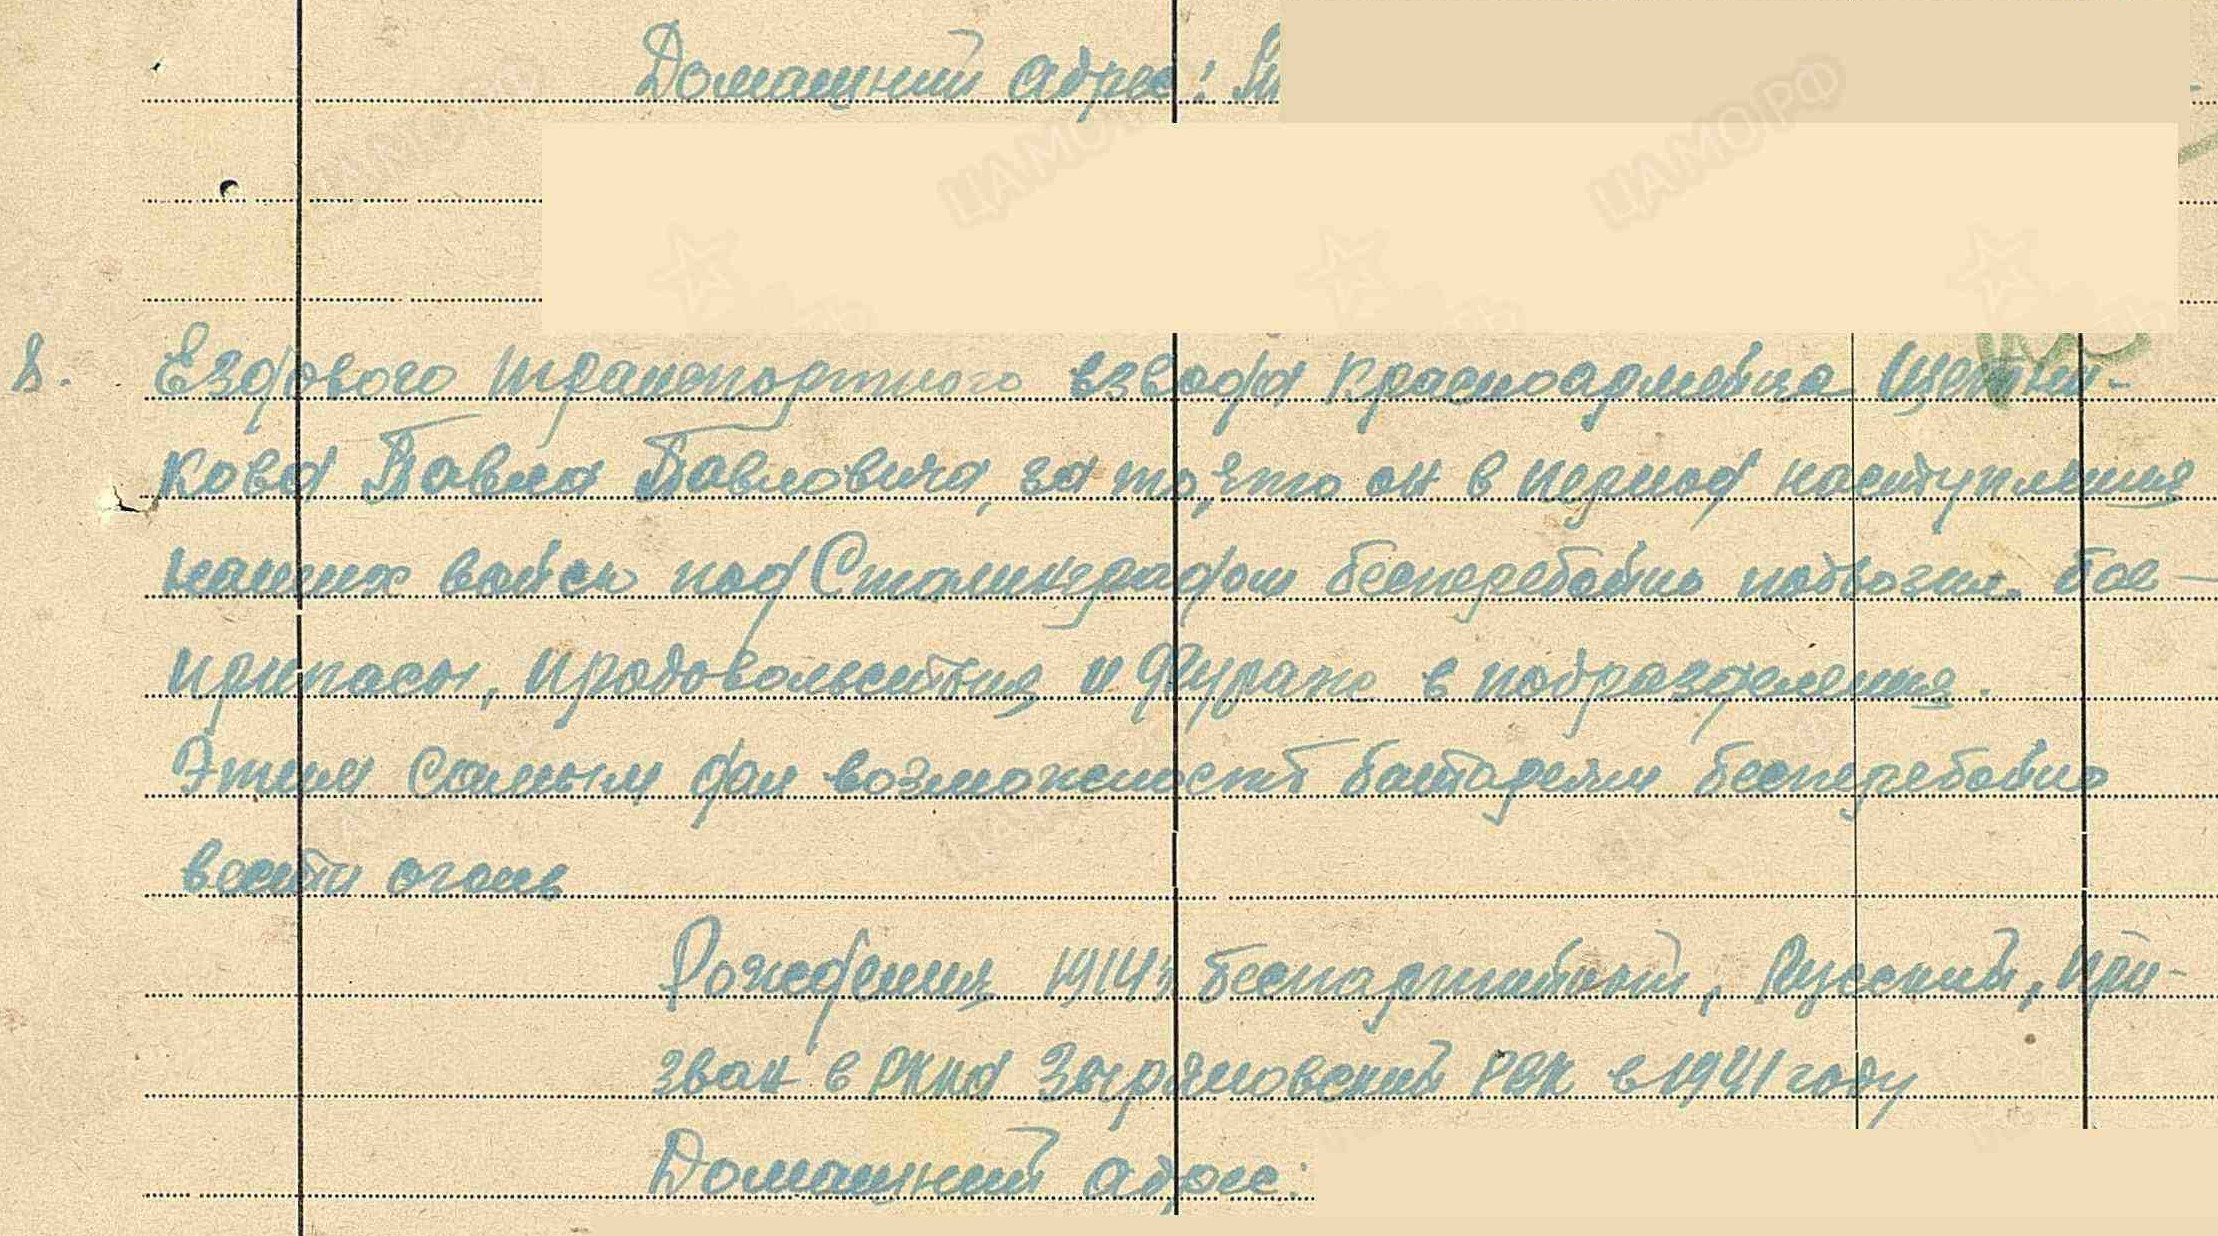 Домашний адрес:
8. Ездового транспортного взвода красноармейца Щетни-
кова Павла Павловича, за то, что он в период наступления
наших войск под Сталинградом бесперебойно подвозил бое-
припасы, продовольствия и фураж в подразделения.
Этим самым дал возможность батареям бесперебойно
вести огонь
Рождения 1914г беспартийный, Русский, при-
зван в РККА Зыряновский РВК в 1941 году
Домашний адрес: